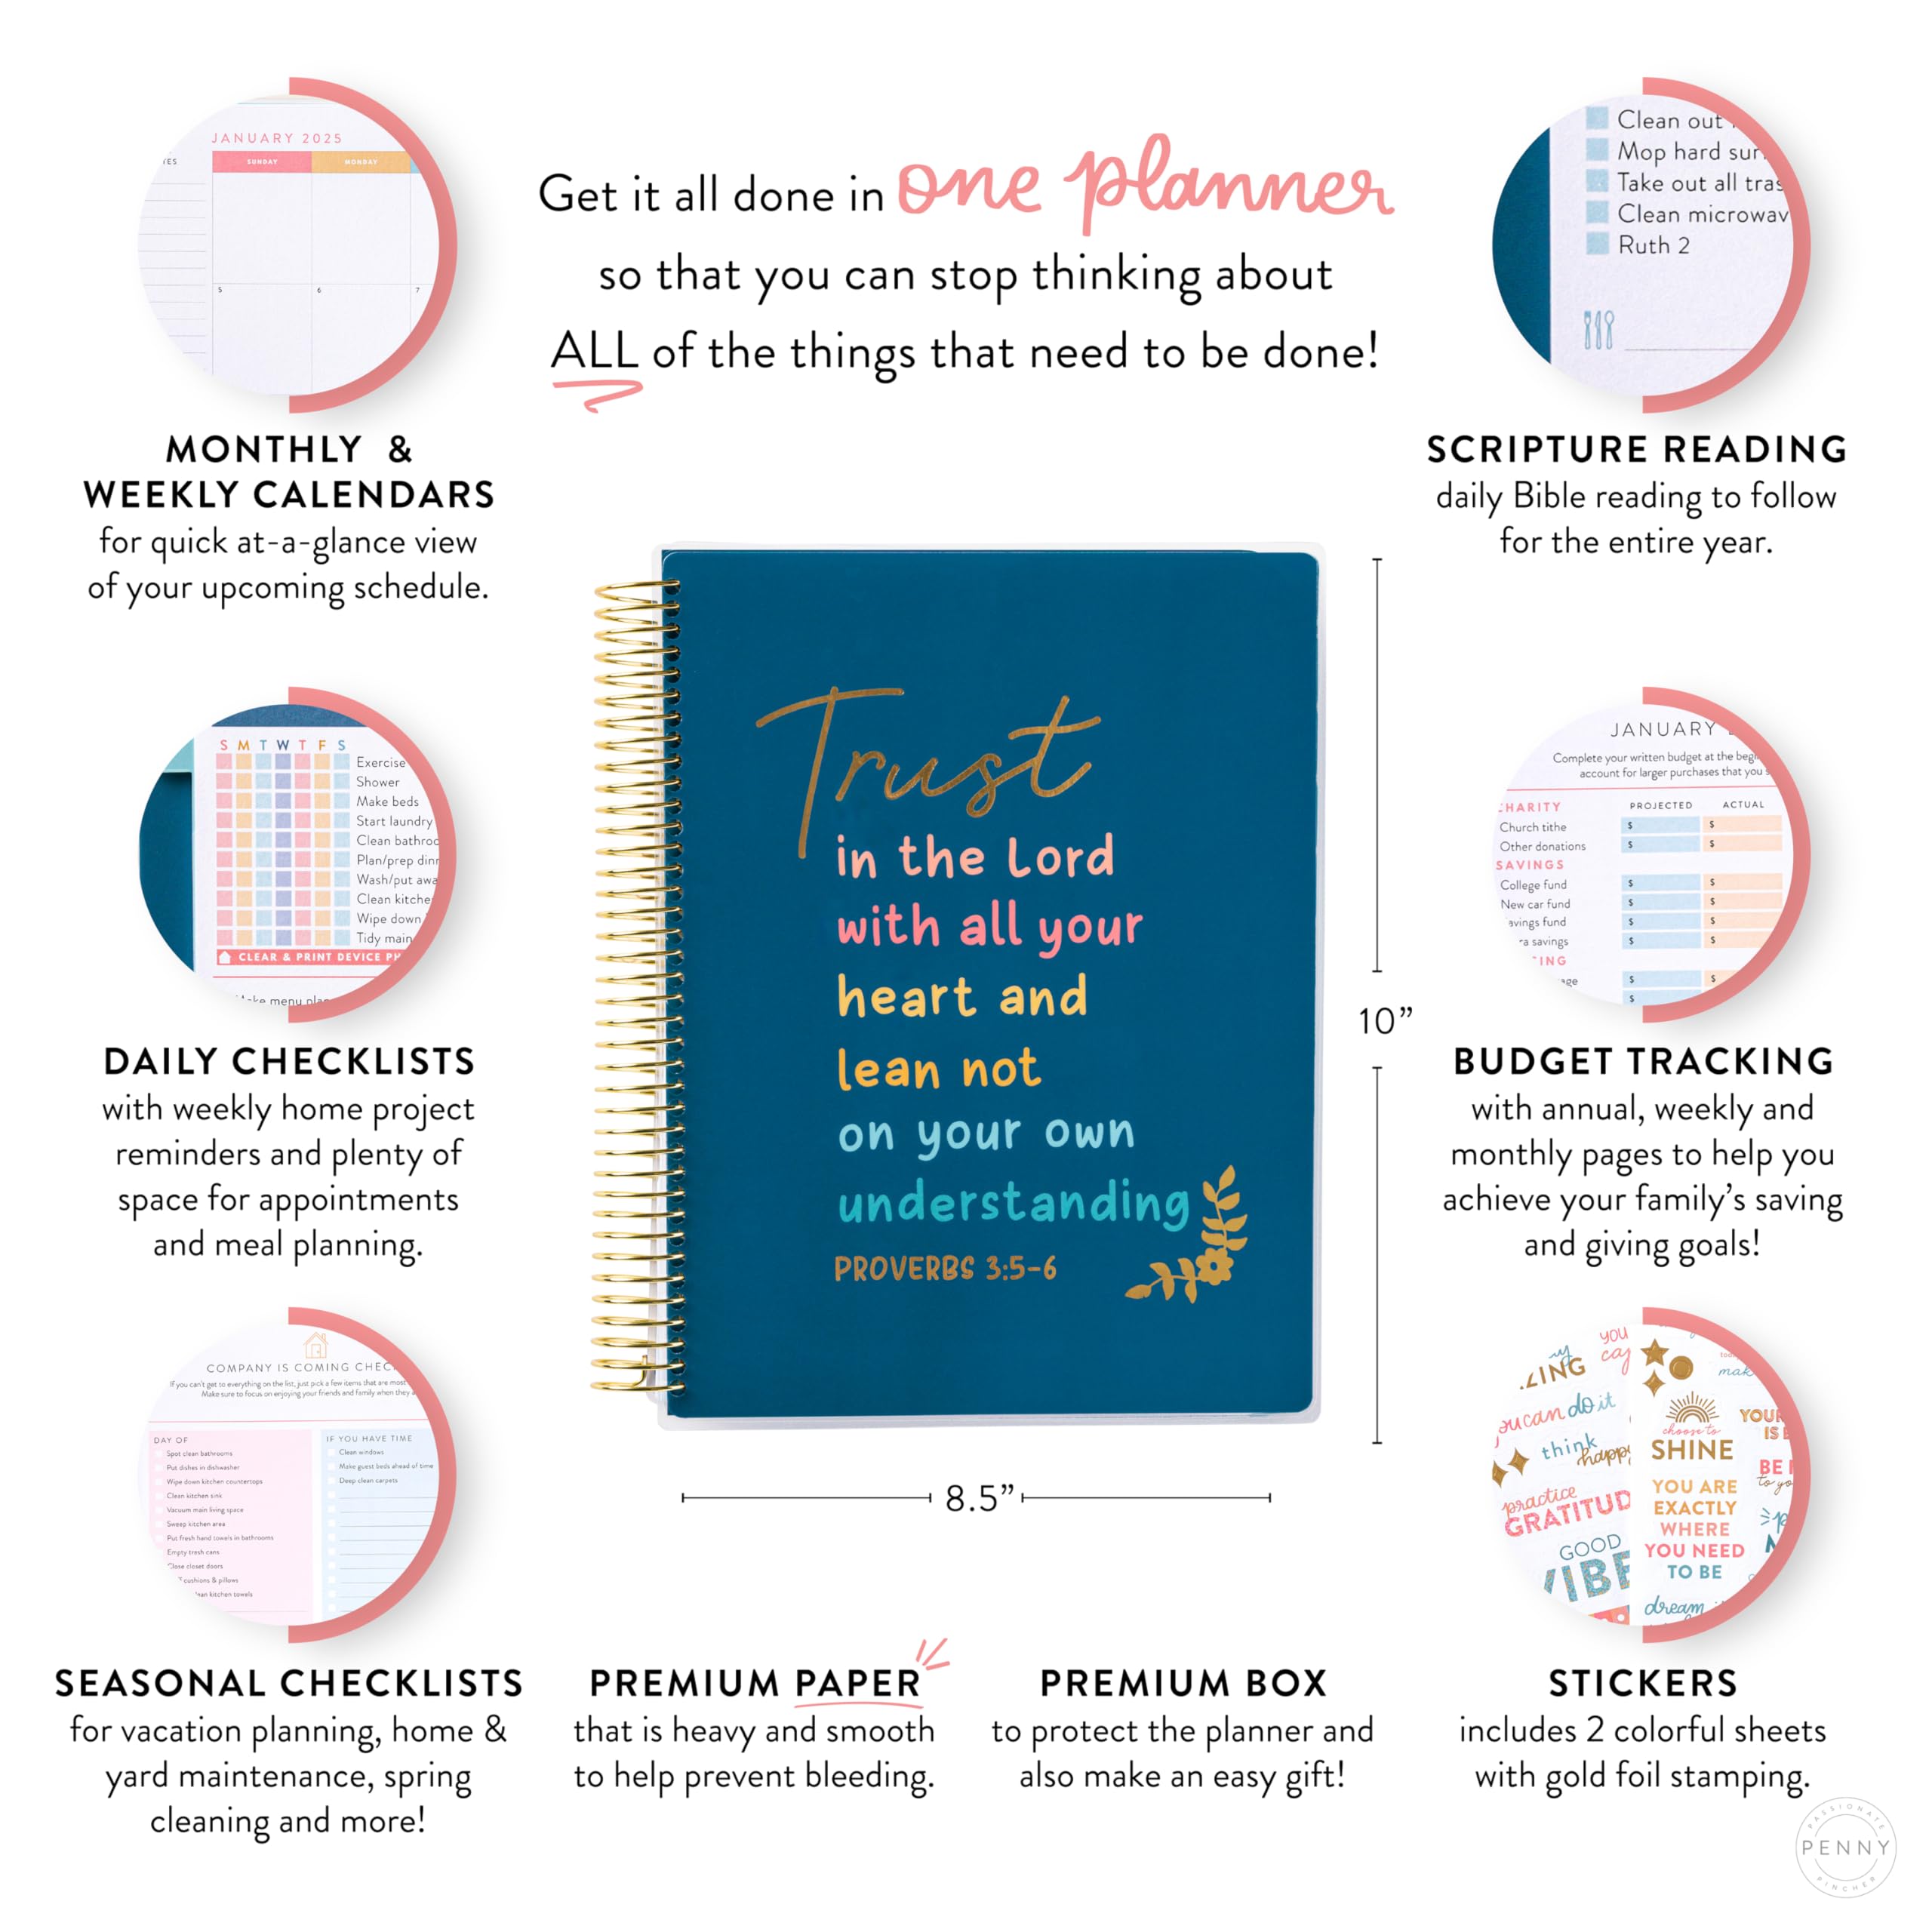 Get it all done in one planner
so that you can stop thinking about
ALL of the things that need to be done!
JANUARY 2025
SUNDAY MONDAY
5 6 7
MONTHLY &
WEEKLY CALENDARS
for quick at-a-glance view
of your upcoming schedule.
Clean out
Mop hard
Take out all
Clean
Ruth 2
SCRIPTURE READING
daily Bible reading to follow
for the entire year.
S M T W T F S
Exercise
Shower
Make beds
Start laundry
Clean
Plan/prep
Wash/put
Clean
Wipe down
Tidy main
CLEAR & PRINT DEVICE
menu
DAILY CHECKLISTS
with weekly home project
reminders and plenty of
space for appointments
and meal planning.
Trust
in the Lord
with all your
heart and
lean not
on your own
understanding
PROVERBS 3:5-6
10”
8.5”
JANUARY
Complete your written budget at the
account for larger purchases that you
PROJECTED ACTUAL
Church tithe $ $
Other donations $ $
SAVINGS
College fund $ $
New car fund $ $
fund $ $
savings $ $
$ $
$
BUDGET TRACKING
with annual, weekly and
monthly pages to help you
achieve your family’s saving
and giving goals!
COMPANY IS COMING
If you can't get to everything on the list, just pick a few items that are most
Make sure to focus on enjoying your friends and family when they
DAY OF
Spot clean bathrooms
Put dishes in dishwasher
Wipe down kitchen countertops
Clean kitchen sink
Vacuum main living space
Sweep kitchen area
Put fresh hand towels in bathrooms
Empty trash cans
Close closet doors
cushions & pillows
kitchen towels
IF YOU HAVE TIME
Clean windows
Make guest beds ahead of time
Deep clean carpets
SEASONAL CHECKLISTS
for vacation planning, home &
yard maintenance, spring
cleaning and more!
PREMIUM PAPER
that is heavy and smooth
to help prevent bleeding.
PREMIUM BOX
to protect the planner and
also make an easy gift!
you
can do it
think
practice
GOOD
choose to
SHINE
YOU ARE
EXACTLY
WHERE
YOU NEED
TO BE
dream
STICKERS
includes 2 colorful sheets
with gold foil stamping.
PASSIONATE
PENNY
PINCHER